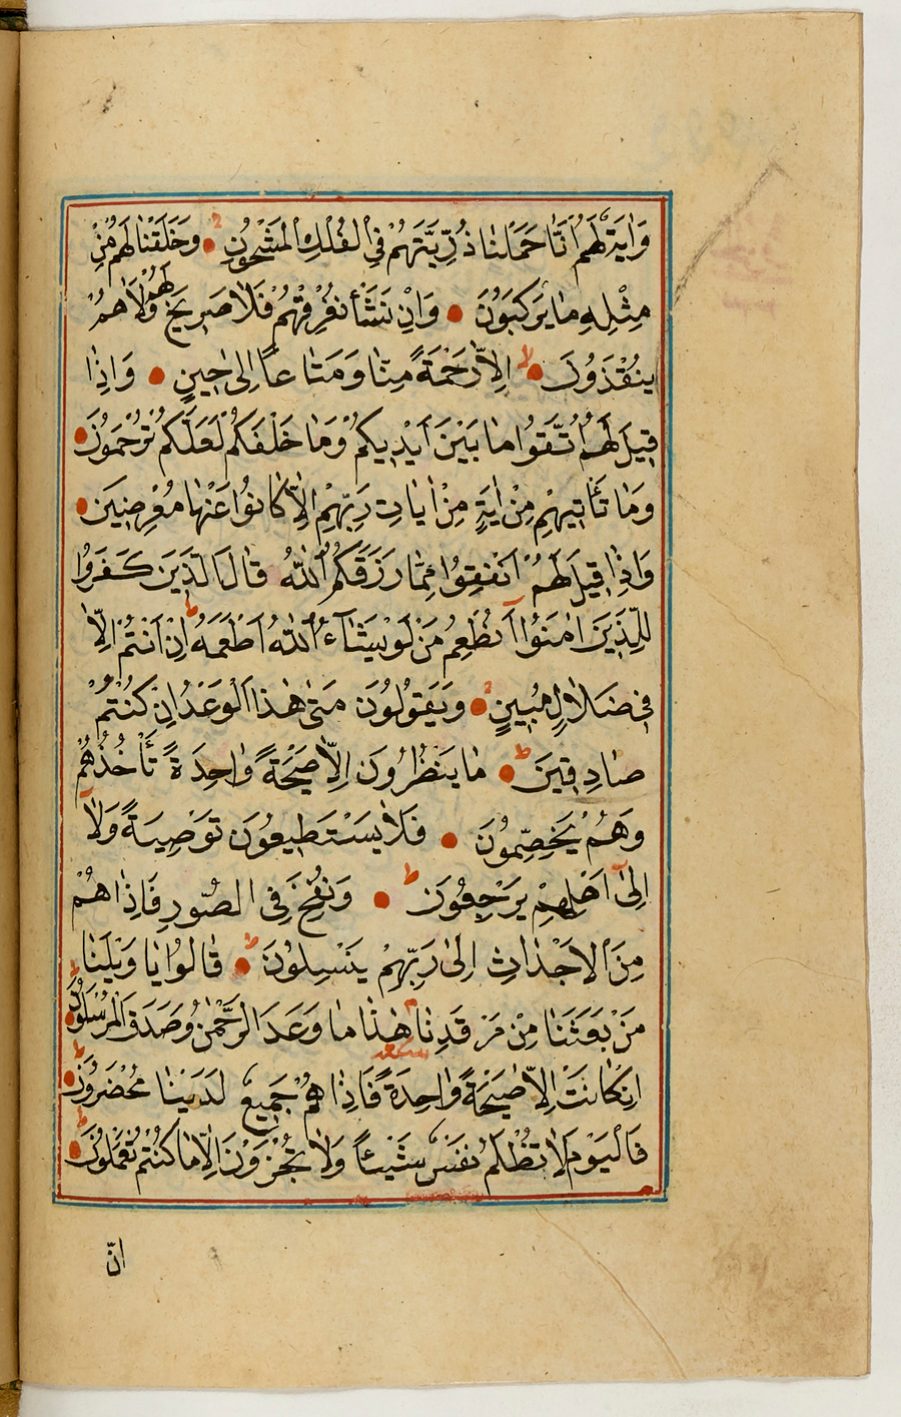 وَاٰيَةٌ لَهُمْ اَنَّا حَمَلْنَا ذُرِّيَّتَهُمْ فِي الْفُلْكِ الْمَشْحُونِ وَخَلَقْنَا لَهُمْ مِنْ
مِثْلِهِ مَا يَرْكَبُونَ وَاِنْ نَشَأْ نُغْرِقْهُمْ فَلَا صَرِيخَ لَهُمْ وَلَا هُمْ
يُنْقَذُونَ اِلَّا رَحْمَةً مِنَّا وَمَتَاعًا اِلٰى حِينٍ وَاِذَا
قِيلَ لَهُمُ اتَّقُوا مَا بَيْنَ اَيْدِيكُمْ وَمَا خَلْفَكُمْ لَعَلَّكُمْ تُرْحَمُونَ
وَمَا تَأْتِيهِمْ مِنْ اٰيَةٍ مِنْ اٰيَاتِ رَبِّهِمْ اِلَّا كَانُوا عَنْهَا مُعْرِضِينَ
وَاِذَا قِيلَ لَهُمْ اَنْفِقُوا مِمَّا رَزَقَكُمُ اللّٰهُ قَالَ الَّذِينَ كَفَرُوا
لِلَّذِينَ اٰمَنُوا اَنُطْعِمُ مَنْ لَوْ يَشَآءُ اللّٰهُ اَطْعَمَهُ اِنْ اَنْتُمْ اِلَّا
فِي ضَلَالٍ مُبِينٍ وَيَقُولُونَ مَتٰى هٰذَا الْوَعْدُ اِنْ كُنْتُمْ
صَادِقِينَ مَا يَنْظُرُونَ اِلَّا صَيْحَةً وَاحِدَةً تَأْخُذُهُمْ
وَهُمْ يَخِصِّمُونَ فَلَا يَسْتَطِيعُونَ تَوْصِيَةً وَلَا
اِلٰى اَهْلِهِمْ يَرْجِعُونَ وَنُفِخَ فِي الصُّورِ فَاِذَا هُمْ
مِنَ الْاَجْدَاثِ اِلٰى رَبِّهِمْ يَنْسِلُونَ قَالُوا يَا وَيْلَنَا
مَنْ بَعَثَنَا مِنْ مَرْقَدِنَا هٰذَا مَا وَعَدَ الرَّحْمٰنُ وَصَدَقَ الْمُرْسَلُونَ
اِنْ كَانَتْ اِلَّا صَيْحَةً وَاحِدَةً فَاِذَا هُمْ جَمِيعٌ لَدَيْنَا مُحْضَرُونَ
فَالْيَوْمَ لَا تُظْلَمُ نَفْسٌ شَيْئًا وَلَا تُجْزَوْنَ اِلَّا مَا كُنْتُمْ تَعْمَلُونَ
اِنَّ